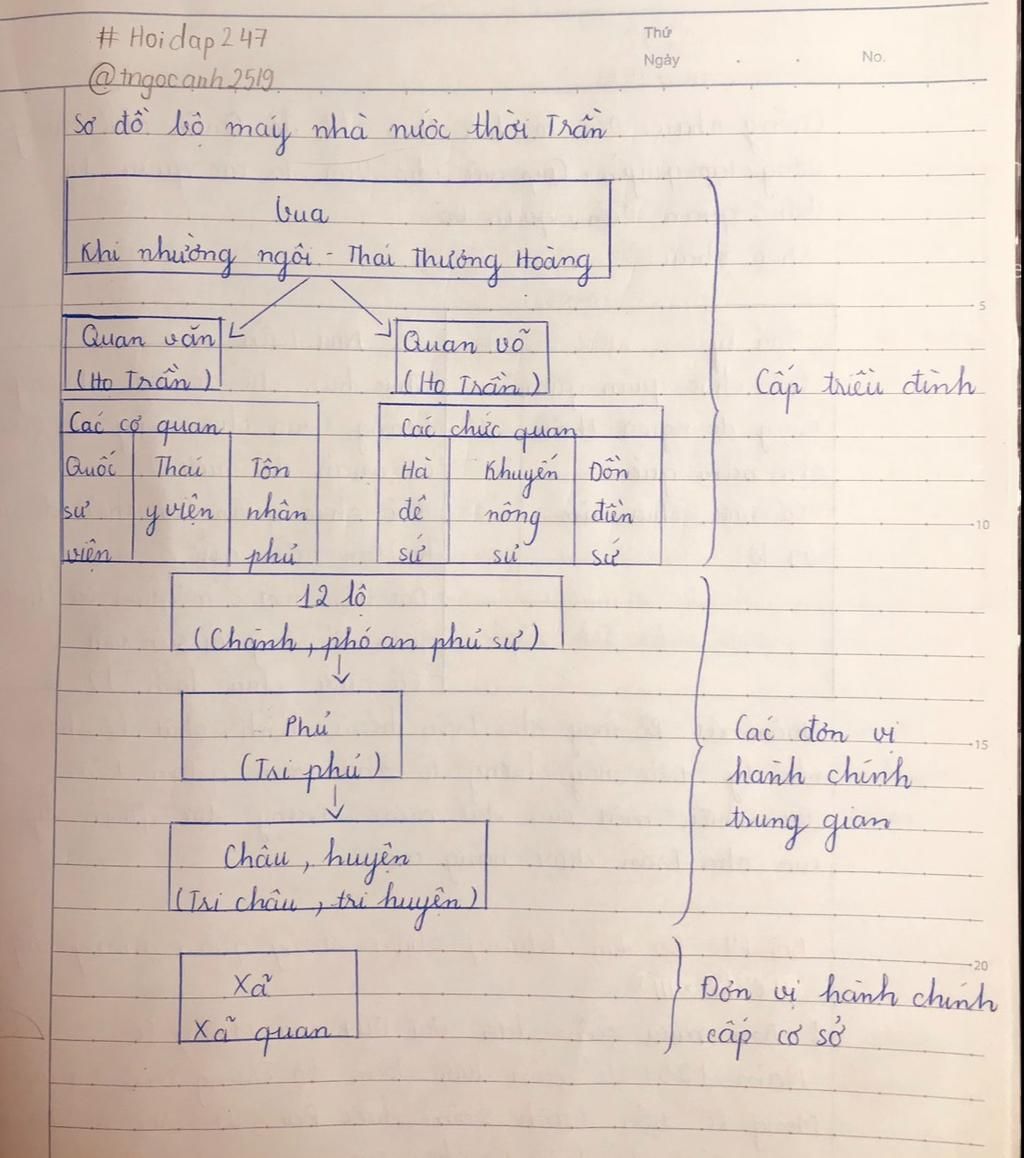 # Hoidap247
@tngocanh2519
Thứ
Ngày
No.
Sơ đồ bộ máy nhà nước thời Trần
Vua
Khi nhường ngôi - Thái Thượng Hoàng
Quan văn
(Họ Trần)
Quan võ
(Họ Trần)
Cấp triều đình
Các cơ quan
Quốc sư viện
Thái y viện
Tôn nhân phủ
Các chức quan
Hà đê sứ
Khuyến nông sứ
Đồn điền sứ
12 lộ
(Chánh, phó an phủ sứ)
Phủ
(Tri phủ)
Châu, huyện
(Tri châu, tri huyện)
Các đơn vị
hành chính
trung gian
Xã
Xã quan
Đơn vị hành chính
cấp cơ sở
5
10
15
20